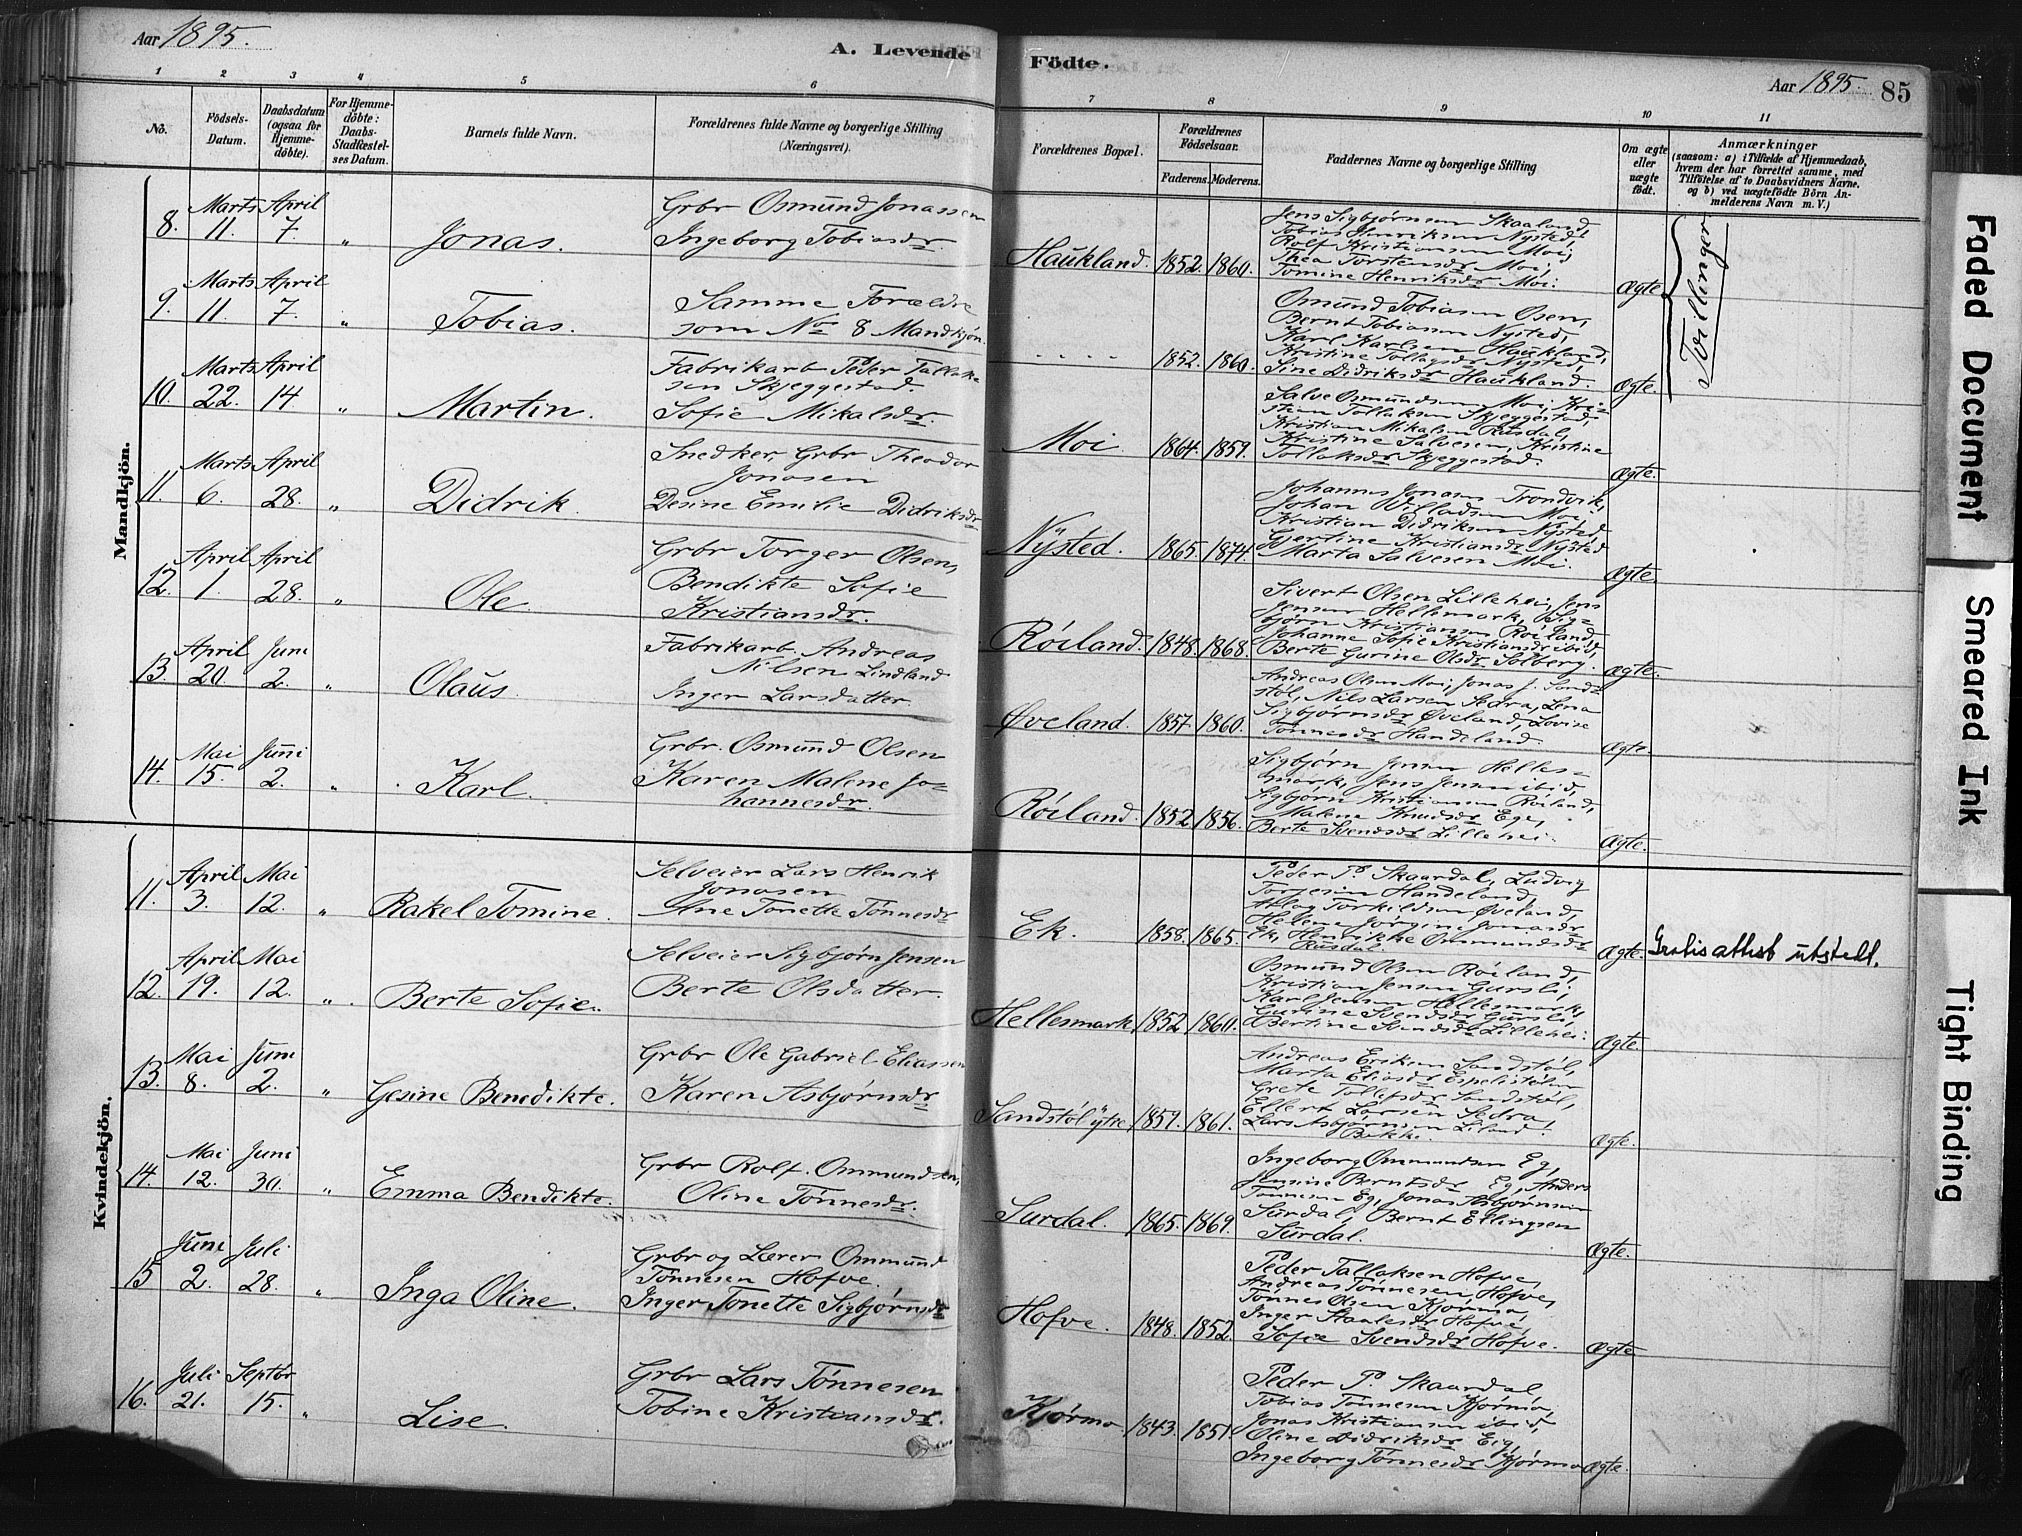 Aar 1895.
A. Levende Födte.
Aar 1895. 85
1 2 3 4 5 6 7 8 9 10 11
No.
Födsels-Datum.
Daabsdatum (ogsaa for Hjemme-döbte).
For Hjemme-döbte: Daabs-Stadfæstel-ses Datum.
Barnets fulde Navn.
Forældrenes fulde Navne og borgerlige Stilling (Næringsvei).
Forældrenes Bopæl.
Forældrenes Födselsaar.
Faderens. Moderens.
Faddernes Navne og borgerlige Stilling
Om ægte eller uægte födt.
Anmærkninger
(saasom: a) i Tilfælde af Hjemmedaab,
hvem der har forrettet samme, med
Tilföielse af to Daabsvidners Navne.
og b) ved uægtefödte Börn An-
melderens Navn m. V.)
Mandkjön.
8. Marts 11. April 7. " Jonas.
Grbr Osmund Jonassen
Ingeborg Tobiasdr.
Haukland. 1852. 1860.
Jens Sigbjørnsen Skaaland,
Tobias Henriksen Nysted,
Rolf Kristiansen Moi,
Thea Torstensdr Moi,
Tomine Henriksdr Moi.
Ægte
Tvillinger
9. Marts 11. April 7. " Tobias.
Samme Forældre
som No 8 Mandkjøn.
. . . . 1852. 1860.
Osmund Tobiasen Osen,
Bernt Tobiasen Nysted,
Karl Karlsen Haukland,
Kristine Tollagsdr Nysted,
Sine Didriksdr Haukland.
Ægte.
10. Marts 22. April 14. " Martin.
Fabrikarb Peder Tallak-
sen Skjeggestad.
Sofie Mikalsdr.
Moi. 1864. 1859.
Salve Osmundsen Moi, Kri-
stian Tollaksen Skjeggestad,
Kristian Mikalsen Rusdal,
Kristine Salvesen, Kristine
Tollaksdr Skjeggestad.
Ægte.
11. Marts 6. April 28. " Didrik.
Snedker, Grbr Theodor
Jonasen
Desine Emilie Didriksdr
Nysted. 1865. 1874.
Johannes Jonasen Trondvik,
Johan Villadsen Moi
Kristian Didriksen Nysted,
Gjertine Kristiansdr Nysted
Marta Salvesen Moi.
Ægte.
12. April 1. April 28. " Ole.
Grbr Torger Olsen,
Bendikte Sofie
Kristiansdr.
Røiland. 1848. 1868.
Sivert Olsen Lillehei, Jens
Jensen Hellesmark, Sig-
bjørn Kristiansen Røiland,
Johanne Sofie Kristiansdr ibid,
Berte Gurine Olsdr Solberg.
Ægte.
13. April 20. Juni 2. " Olaus.
Fabrikarb. Andreas
Nilsen Lindland
Inger Larsdatter
Øveland. 1857. 1860.
Andreas Olsen Moi, Jonas J. Sand-
støl, Nils Larsen Sedra, Lina
Sigbjørnsdr Øveland, Lovise
Tønnesdr Handeland.
Ægte.
14. Mai 15. Juni 2. " Karl.
Grbr. Osmund Olsen
Karen Malene Jo-
hannesdr.
Røiland. 1852 1856.
Sigbjørn Jensen Helles-
mark, Jens Jensen ibid,
Sigbjørn Kristiansen Røiland,
Malene Knudsdr Ege,
Berte Svendsdr Lillehei.
Ægte.
Kvindekjön.
11. April 3. Mai 12. " Rakel Tomine.
Selveier Lars Henrik
Jonasen
Ane Tonette Tønnesdr
Ek. 1858. 1865.
Peder P. Skaardal, Ludvig
Torgesen Handeland,
Atlag Torkildsen Øveland,
Helene Jørgine Jonasdr
Ek, Henrikke Ommundsdr
Rusdal.
Ægte. Gratis attest utstedt.
12. April 19. Mai 12. " Berte Sofie.
Selveier Sigbjørn Jensen
Berte Olsdatter.
Hellesmark. 1852 1860.
Osmund Olsen Røiland,
Kristian Jensen Gursli,
Karl Jensen Hellesmark,
Gurine Svendsdr Gursli,
Bertine Svendsdr Lillehei.
Ægte.
13. Mai 8. Juni 2. " Gesine Benedikte.
Grbr Ole Gabriel Eliassen
Karen Asbjørnsdr
Sandstøl ytre, 1859. 1861.
Andreas Eriksen Sandstøl,
Marta Eliasdr Espelistølen
Grete Tollefsdr Sandstøl,
Ellert Larsen Sedra,
Lars Asbjørnsen Liland
Bakke.
Ægte.
14. Mai 12. Juni 30. " Emma Bendikte.
Grbr Rolf. Ommundsen,
Oline Tønnesdr.
Surdal. 1865. 1869.
Ingeborg Ommundsen Eg,
Jensine Berntsdr Eg, Anders
Tønnesen Eg, Jonas Asbjørnsen
Surdal, Bernt Ellingsen
Surdal.
Ægte.
15 Juni 2. Juli 28. " Inga Oline.
Grbr og Lærer Ommund
Tønnesen Hofve.
Inger Tonette Sigbjørnsdr
Hofve. 1848. 1852.
Peder Tallaksen Hofve,
Andreas Tønnesen, Hofve,
Tønnes Olsen Kjørmo,
Inger Staalesdr Hofve,
Sofie Svendsdr Hofve.
Ægte
16. Juli 21. Septbr 15. " Lise.
Grbr Lars Tønnesen
Tobine Kristiansdr.
Kjørmo. 1843. 1851.
Peder P. Skaardal
Tobias Tønnesen Kjørmo,
Jonas Kristiansen ibid,
Oline Didriksdr Eig,
Ingeborg Tønnesdr Kjørmo
Ægte.
Faded Document
Smeared Ink
Tight Binding